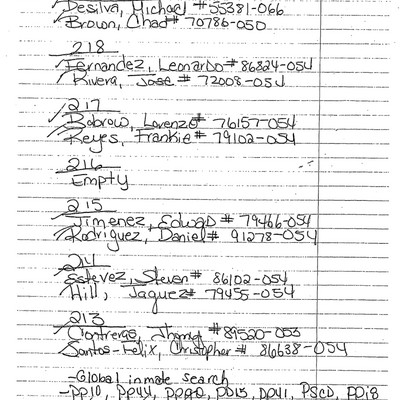 Desilva, Michael # 55381-066
Brown, Chad # 70786-050
218
Fernandez, Leonardo # 86824-054
Rivera, Jose # 72008-054
217
Bobrow, Lorenzo # 76157-054
Keyes, Frankie # 79102-054
216
Empty
215
Jimenez, Edward # 79466-054
Rodriguez, Daniel # 91278-054
214
Estevez, Steven # 86102-054
Hill, Jaquez # 79455-054
213
Contreras, # 89520-053
Santos-Felix, Christopher # 86638-054
-Global inmate search
-PP10, PP44, PP90, PD15, PP41, PSCD, PDI8